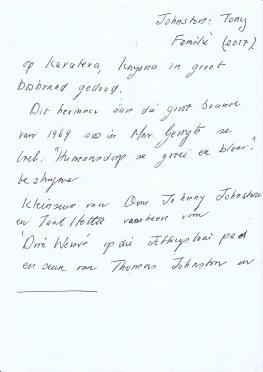 Johnston: Tony
Familie (2017)
op Karatara, Knysna in groot
bosbrand gedood.
Dit herinner aan die groot brande
van 1969 soos in Mnr. Gerryts se
boek: "Humansdorp se groei en bloei"
beskryf
Kleinseun van Oom Johnny Johnston
en Tant Hetta van
Drie Werwe op die Jeffreysbaai pad
en seun van Thomas Johnston en